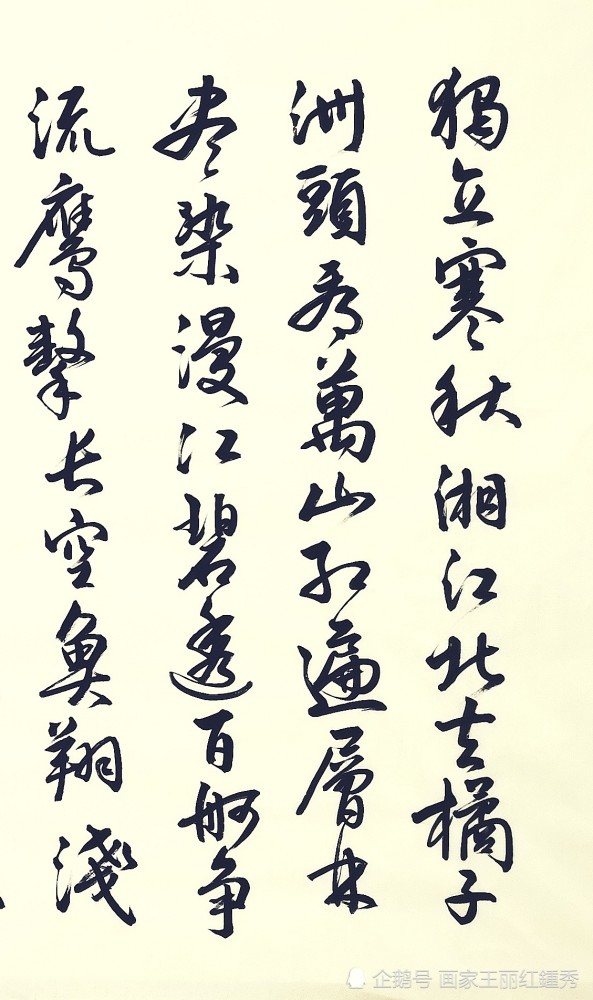 獨立寒秋湘江北去橘子
洲頭看萬山红遍層林
尽染漫江碧透百舸争
流鹰擊长空魚翔淺
企鹅号 画家王丽红秀